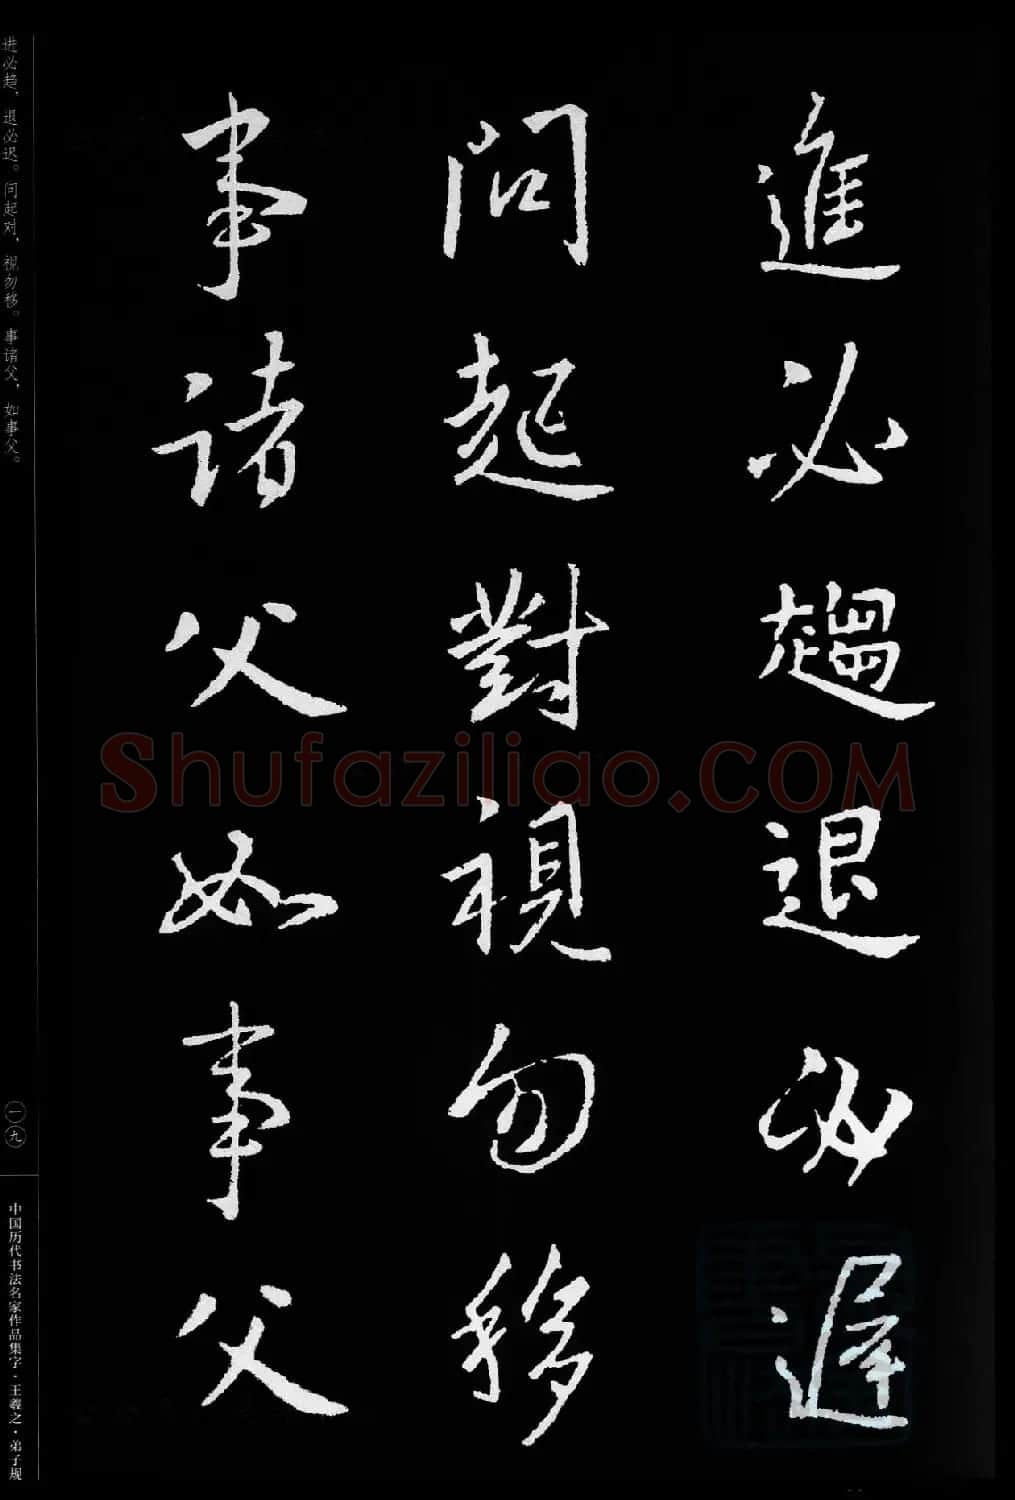 進必趨退必遲
問起對視勿移
事諸父如事父
进必趋，退必迟。问起对，视勿移。事诸父，如事父。
一九
中国历代书法名家作品集字·王羲之·弟子规
Shufaziliao.COM